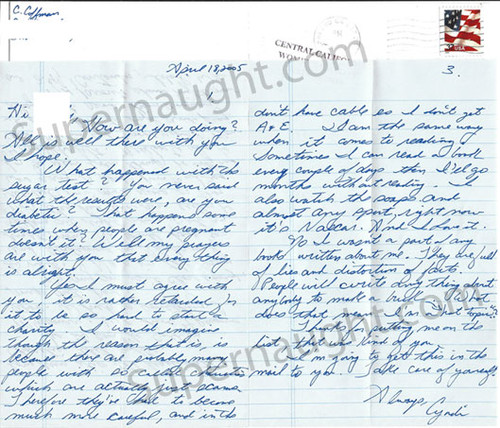 C. Coffman
CENTRAL CALIF
WOM
USA
April 18, 2005
1
3.
Hi
How are you doing?
All is well there with you
I hope.
What happened with the
sugar test? You never said
what the results were, are you
diabetic? That happens some
times when people are pregnant
doesn't it? Well my prayers
are with you that everything
is alright.
Yes I must agree with
you, it is rather retarded for
it to be so hard to start a
charity. I would imagine
though the reason that is, is
because there are probably many
people with so called charities
which are actually just scams.
Therefore they've had to become
much more careful, and in the
don't have cable so I don't get
A & E. I am the same way
when it comes to reading!
Sometimes I can read a book
every couple of days then I'll go
months without reading. I
also watch the soaps and
almost any sport, right now
it's Nascar. And I love it.
No I wasn't a part of any
book written about me. They are full
of lies and distortion of facts.
People will write anything about
anybody to make a buck.
does that
Thanks for putting me on the
list, that's kind of you.
I'm going to get this in the
mail to you. Take care of yourself.
Always,
Cyndi
Supernaught.com
Supernaught.com
Supernaught.com